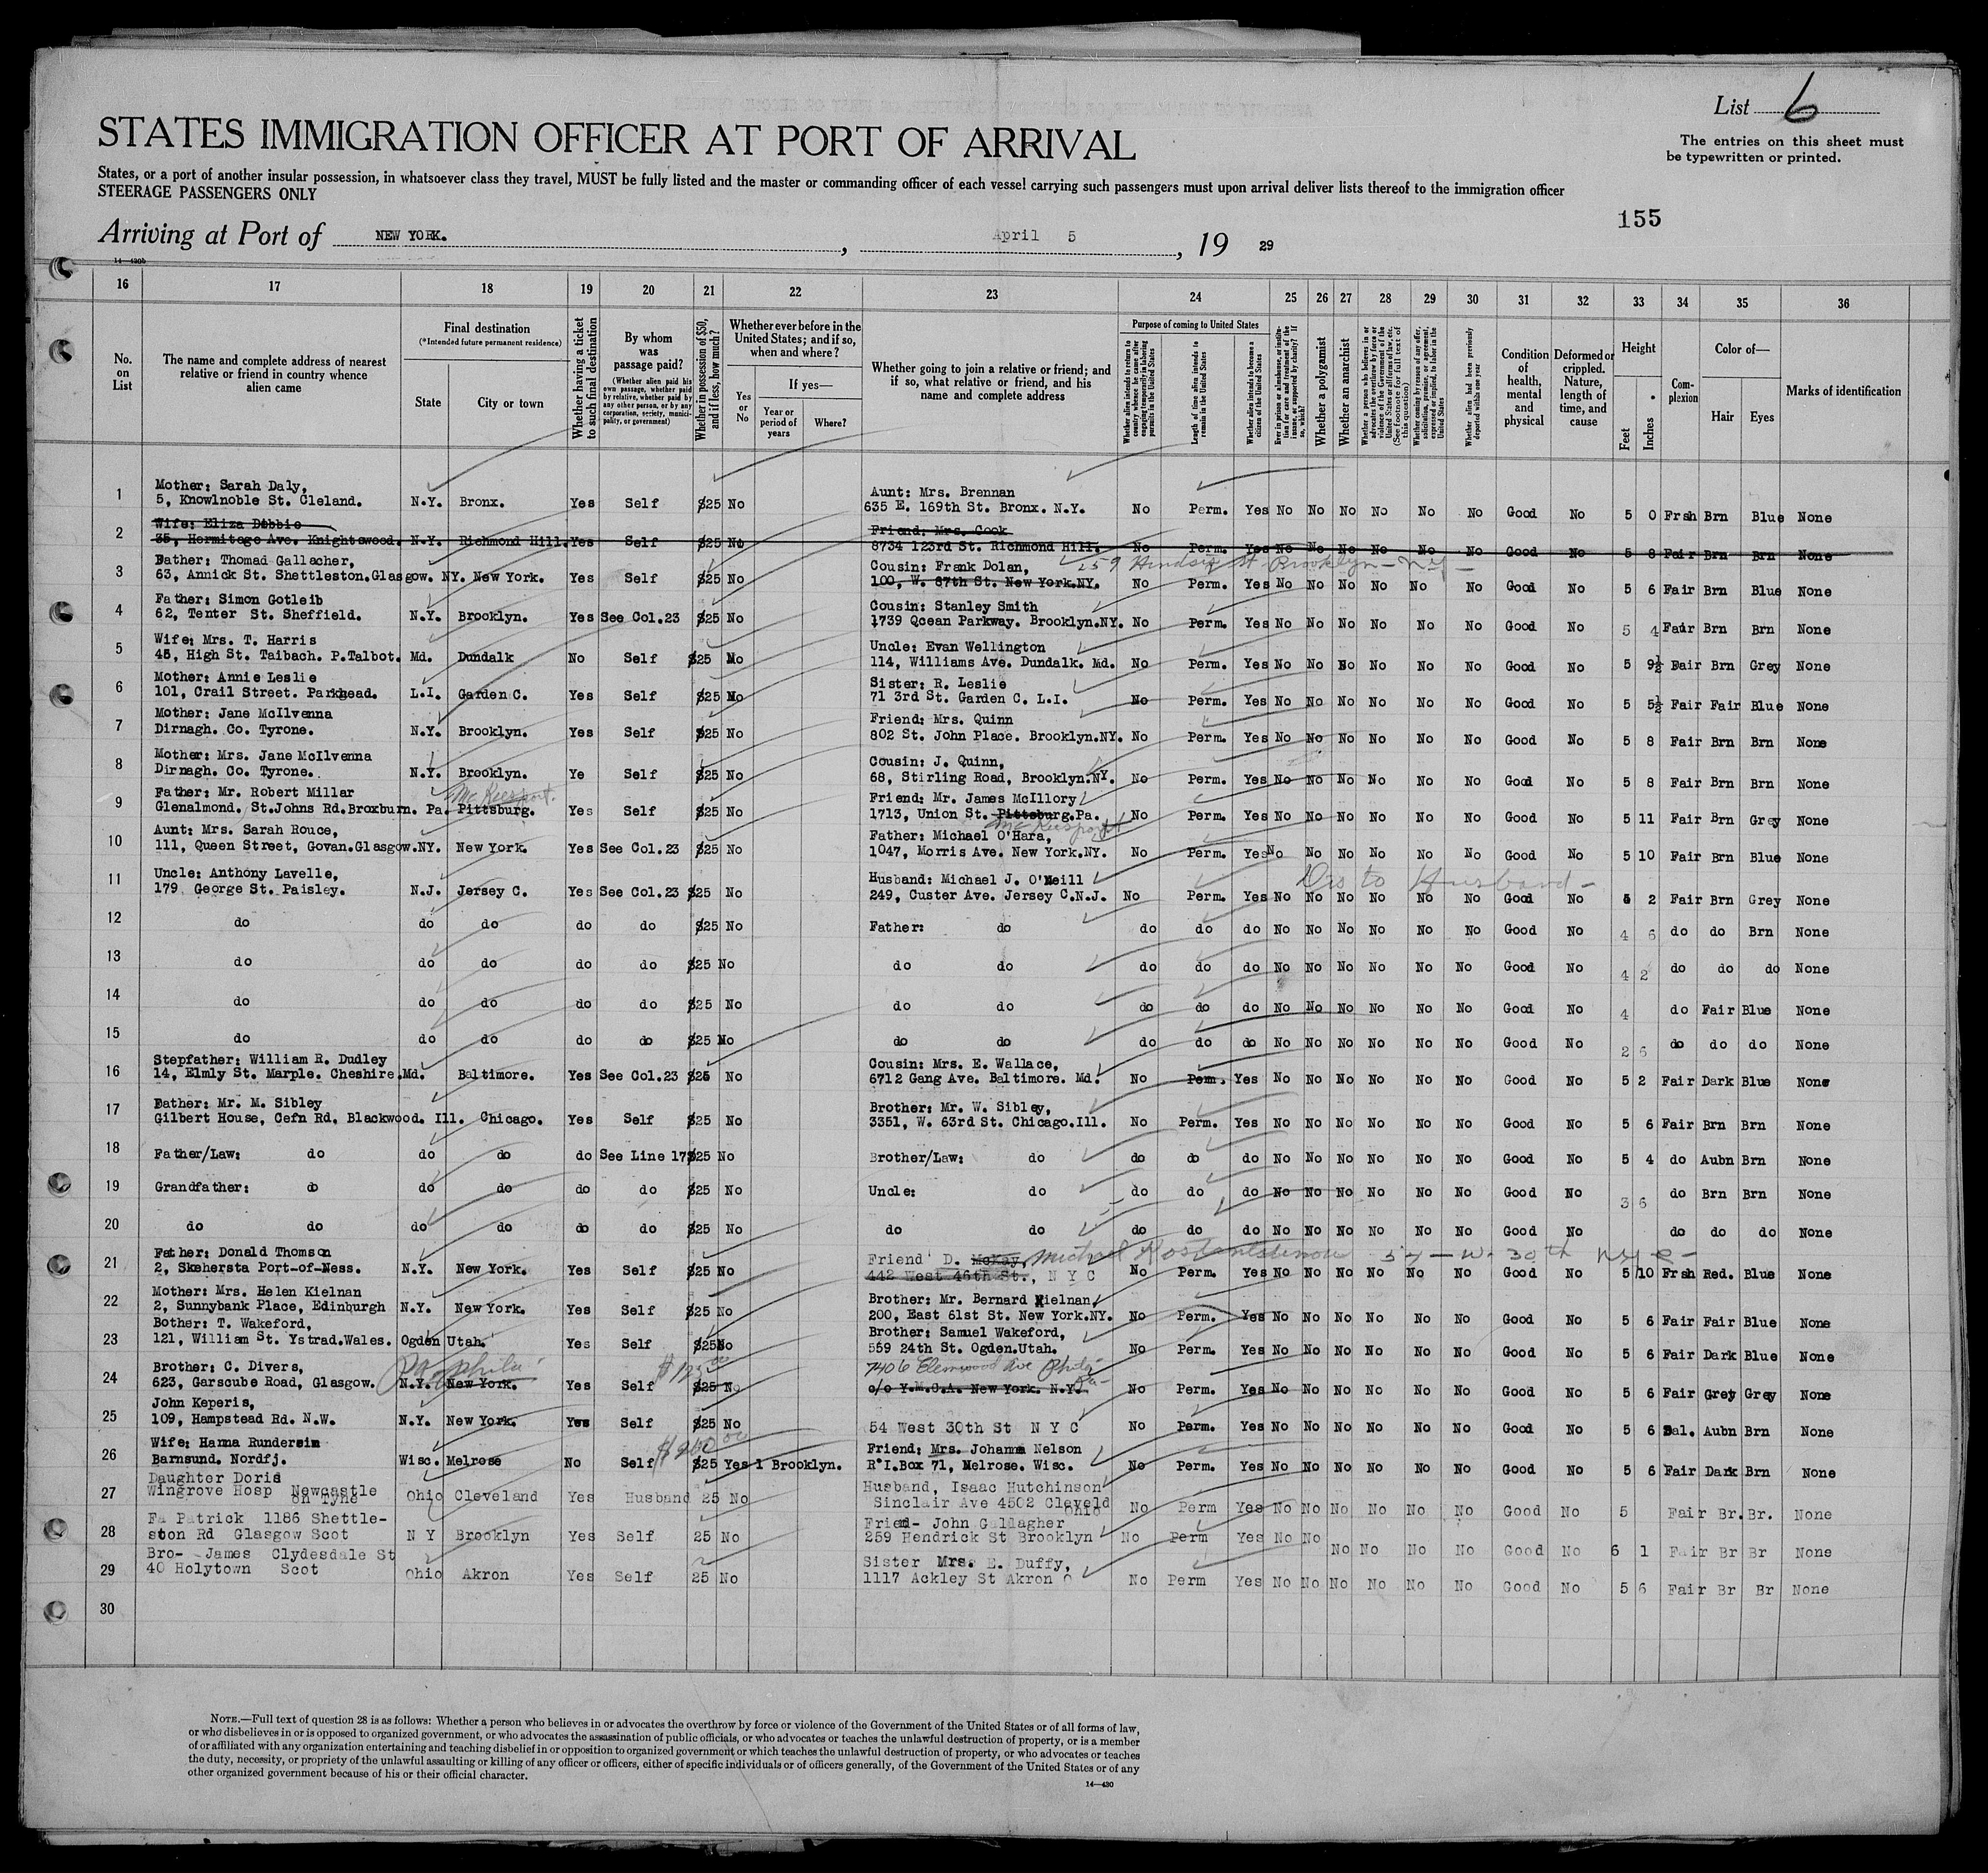 List 6
STATES IMMIGRATION OFFICER AT PORT OF ARRIVAL
The entries on this sheet must
be typewritten or printed.
States, or a port of another insular possession, in whatsoever class they travel, MUST be fully listed and the master or commanding officer of each vessel carrying such passengers must upon arrival deliver lists thereof to the immigration officer
STEERAGE PASSENGERS ONLY
155
Arriving at Port of NEW YORK. , April 5 , 19 29
14—430b
16 17 18 19 20 21 22 23 24 25 26 27 28 29 30 31 32 33 34 35 36
No. on List
The name and complete address of nearest relative or friend in country whence alien came
Final destination
(*Intended future permanent residence)
State
City or town
Whether having a ticket to such final destination
By whom was passage paid?
(Whether alien paid his own passage, whether paid by relative, whether paid by any other person, or by any corporation, society, municipality, or government)
Whether in possession of $50, and if less, how much?
Whether ever before in the United States; and if so, when and where?
Yes or No
If yes—
Year or period of years
Where?
Whether going to join a relative or friend; and if so, what relative or friend, and his name and complete address
Purpose of coming to United States
Whether alien intends to return to country whence he came after engaging temporarily in laboring pursuits in the United States
Length of time alien intends to remain in the United States
Whether alien intends to become a citizen of the United States
Ever in prison or almshouse, or institution for care and treatment of the insane, or supported by charity? If so, which?
Whether a polygamist
Whether an anarchist
Whether a person who believes in or advocates the overthrow by force or violence of the Government of the United States or all forms of law, etc. (See footnote for full text of this question)
Whether coming by reason of any offer, solicitation, promise, or agreement, expressed or implied, to labor in the United States
Whether alien had been previously deported within one year
Condition of health, mental and physical
Deformed or crippled. Nature, length of time, and cause
Height
Feet
Inches
Complexion
Color of—
Hair
Eyes
Marks of identification
1 Mother: Sarah Daly, Aunt: Mrs. Brennan
5, Knowlnoble St. Cleland. N.Y. Bronx. Yes Self $25 No 635 E. 169th St. Bronx. N.Y. No Perm. Yes No No No No No No Good No 5 0 Frsh Brn Blue None
2 Wife: Eliza Dobbie Friend: Mrs. Cook
35, Hermitage Ave. Knightswood. N.Y. Richmond Hill. Yes Self $25 No 8734 123rd St. Richmond Hill. No Perm. Yes No No No No No No Good No 5 8 Fair Brn Brn None
3 Father: Thomad Gallacher, Cousin: Frank Dolan, 259 St Brooklyn - N.Y. -
63, Annick St. Shettleston.Glasgow. NY. New York. Yes Self $25 No 100, W. 87th St. New York.NY. No Perm. Yes No No No No No No Good No 5 6 Fair Brn Blue None
4 Father: Simon Gotleib Cousin: Stanley Smith
62, Tenter St. Sheffield. N.Y. Brooklyn. Yes See Col.23 $25 No 1739 Ocean Parkway. Brooklyn.NY. No Perm. Yes No No No No No No Good No 5 4 Fair Brn Brn None
5 Wife: Mrs. T. Harris Uncle: Evan Wellington
45, High St. Taibach. P.Talbot. Md. Dundalk No Self $25 No 114, Williams Ave. Dundalk. Md. No Perm. Yes No No No No No No Good No 5 9½ Fair Brn Grey None
6 Mother: Annie Leslie Sister: R. Leslie
101, Crail Street. Parkhead. L.I. Garden C. Yes Self $25 No 71 3rd St. Garden C. L.I. No Perm. Yes No No No No No No Good No 5 5½ Fair Fair Blue None
7 Mother: Jane McIlvenna Friend: Mrs. Quinn
Dirnagh. Co. Tyrone. N.Y. Brooklyn. Yes Self $25 No 802 St. John Place. Brooklyn.NY. No Perm. Yes No No No No No No Good No 5 8 Fair Brn Brn None
8 Mother: Mrs. Jane McIlvenna Cousin: J. Quinn,
Dirnagh. Co. Tyrone. N.Y. Brooklyn. Ye Self $25 No 68, Stirling Road, Brooklyn.NY. No Perm. Yes No No No No No No Good No 5 8 Fair Brn Brn None
9 Father: Mr. Robert Millar McKeesport. Friend: Mr. James McIllory
Glenalmond. St.Johns Rd.Broxburn. Pa. Pittsburg. Yes Self $25 No 1713, Union St. Pittsburg.Pa. No Perm. Yes No No No No No No Good No 5 11 Fair Brn Grey None
McKeesport
10 Aunt: Mrs. Sarah Rouce, Father: Michael O'Hara,
111, Queen Street, Govan.Glasgow.NY. New York. Yes See Col.23 $25 No 1047, Morris Ave. New York.NY. No Perm. Yes No No No No No No Good No 5 10 Fair Brn Blue None
11 Uncle: Anthony Lavelle, Husband: Michael J. O'Neill Dis to Husband -
179 George St. Paisley. N.J. Jersey C. Yes See Col.23 $25 No 249, Custer Ave. Jersey C.N.J. No Perm. Yes No No No No No No Good No 5 2 Fair Brn Grey None
12 do do do do do $25 No Father: do do do do No No No No No No Good No 4 6 do do Brn None
13 do do do do do $25 No do do do do do No No No No No No Good No 4 2 do do do None
14 do do do do do $25 No do do do do do No No No No No No Good No 4 do Fair Blue None
15 do do do do do $25 No do do do do do No No No No No No Good No 2 6 do do do None
16 Stepfather: William R. Dudley Cousin: Mrs. E. Wallace,
14, Elmly St. Marple. Cheshire.Md. Baltimore. Yes See Col.23 $25 No 6712 Gang Ave. Baltimore. Md. No Perm. Yes No No No No No No Good No 5 2 Fair Dark Blue None
17 Father: Mr. M. Sibley Brother: Mr. W. Sibley,
Gilbert House, Cefn Rd. Blackwood. Ill. Chicago. Yes Self $25 No 3351, W. 63rd St. Chicago.Ill. No Perm. Yes No No No No No No Good No 5 6 Fair Brn Brn None
18 Father/Law: do do do do See Line 17 $25 No Brother/Law: do do do do No No No No No No Good No 5 4 do Aubn Brn None
19 Grandfather: do do do do do $25 No Uncle: do do do do No No No No No No Good No 3 6 do Brn Brn None
20 do do do do do do $25 No do do do do do No No No No No No Good No do do do None
21 Father: Donald Thomson Friend D. McKay, Michael 57 - W. 30th N.Y.C. -
2, Skehersta Port-of-Ness. N.Y. New York. Yes Self $25 No 442 West 46th St., N Y C No Perm. Yes No No No No No No Good No 5 10 Frsh Red. Blue None
22 Mother: Mrs. Helen Kielnan Brother: Mr. Bernard Kielnan,
2, Sunnybank Place, Edinburgh N.Y. New York. Yes Self $25 No 200, East 61st St. New York.NY. No Perm. Yes No No No No No No Good No 5 6 Fair Fair Blue None
23 Bother: T. Wakeford, Brother: Samuel Wakeford,
121, William St. Ystrad.Wales. Ogden Utah. Yes Self $25 No 559 24th St. Ogden.Utah. No Perm. Yes No No No No No No Good No 5 6 Fair Dark Blue None
24 Brother: C. Divers, Pa Phila $125.00 7406 Elmwood Ave Phila Pa-
623, Garscube Road, Glasgow. N.Y. New York. Yes Self $25 No c/o Y.M.C.A. New York. N.Y. No Perm. Yes No No No No No No Good No 5 6 Fair Grey Grey None
25 John Keperis,
109, Hampstead Rd. N.W. N.Y. New York. Yes Self $25 No 54 West 30th St N Y C No Perm. Yes No No No No No No Good No 5 6 Sal. Aubn Brn None
26 Wife: Hanna Rundersim Friend: Mrs. Johanna Nelson
Barnsund. Nordfj. Wisc. Melrose No Self $25 Yes 1 Brooklyn. R I.Box 71, Melrose. Wisc. No Perm. Yes No No No No No No Good No 5 6 Fair Dark Brn None
27 Daughter Doris Husband, Isaac Hutchinson
Wingrove Hosp Newcastle on Tyne Ohio Cleveland Yes Husband 25 No Sinclair Ave 4502 Cleveld Ohio No Perm Yes No No No No No No Good No 5 Fair Br. Br. None
28 Fa Patrick 1186 Shettle- Fried- John Gallagher
ston Rd Glasgow Scot N Y Brooklyn Yes Self 25 No 259 Hendrick St Brooklyn No Perm Yes No No No No No No Good No 6 1 Fair Br Br None
29 Bro- James Clydesdale St Sister Mrs. E. Duffy,
40 Holytown Scot Ohio Akron Yes Self 25 No 1117 Ackley St Akron O No Perm Yes No No No No No No Good No 5 6 Fair Br Br None
30
NOTE.—Full text of question 28 is as follows: Whether a person who believes in or advocates the overthrow by force or violence of the Government of the United States or of all forms of law,
or who disbelieves in or is opposed to organized government, or who advocates the assassination of public officials, or who advocates or teaches the unlawful destruction of property, or is a member
of or affiliated with any organization entertaining and teaching disbelief in or opposition to organized government or which teaches the unlawful destruction of property, or who advocates or teaches
the duty, necessity, or propriety of the unlawful assaulting or killing of any officer or officers, either of specific individuals or of officers generally, of the Government of the United States or of any
other organized government because of his or their official character.
14—430